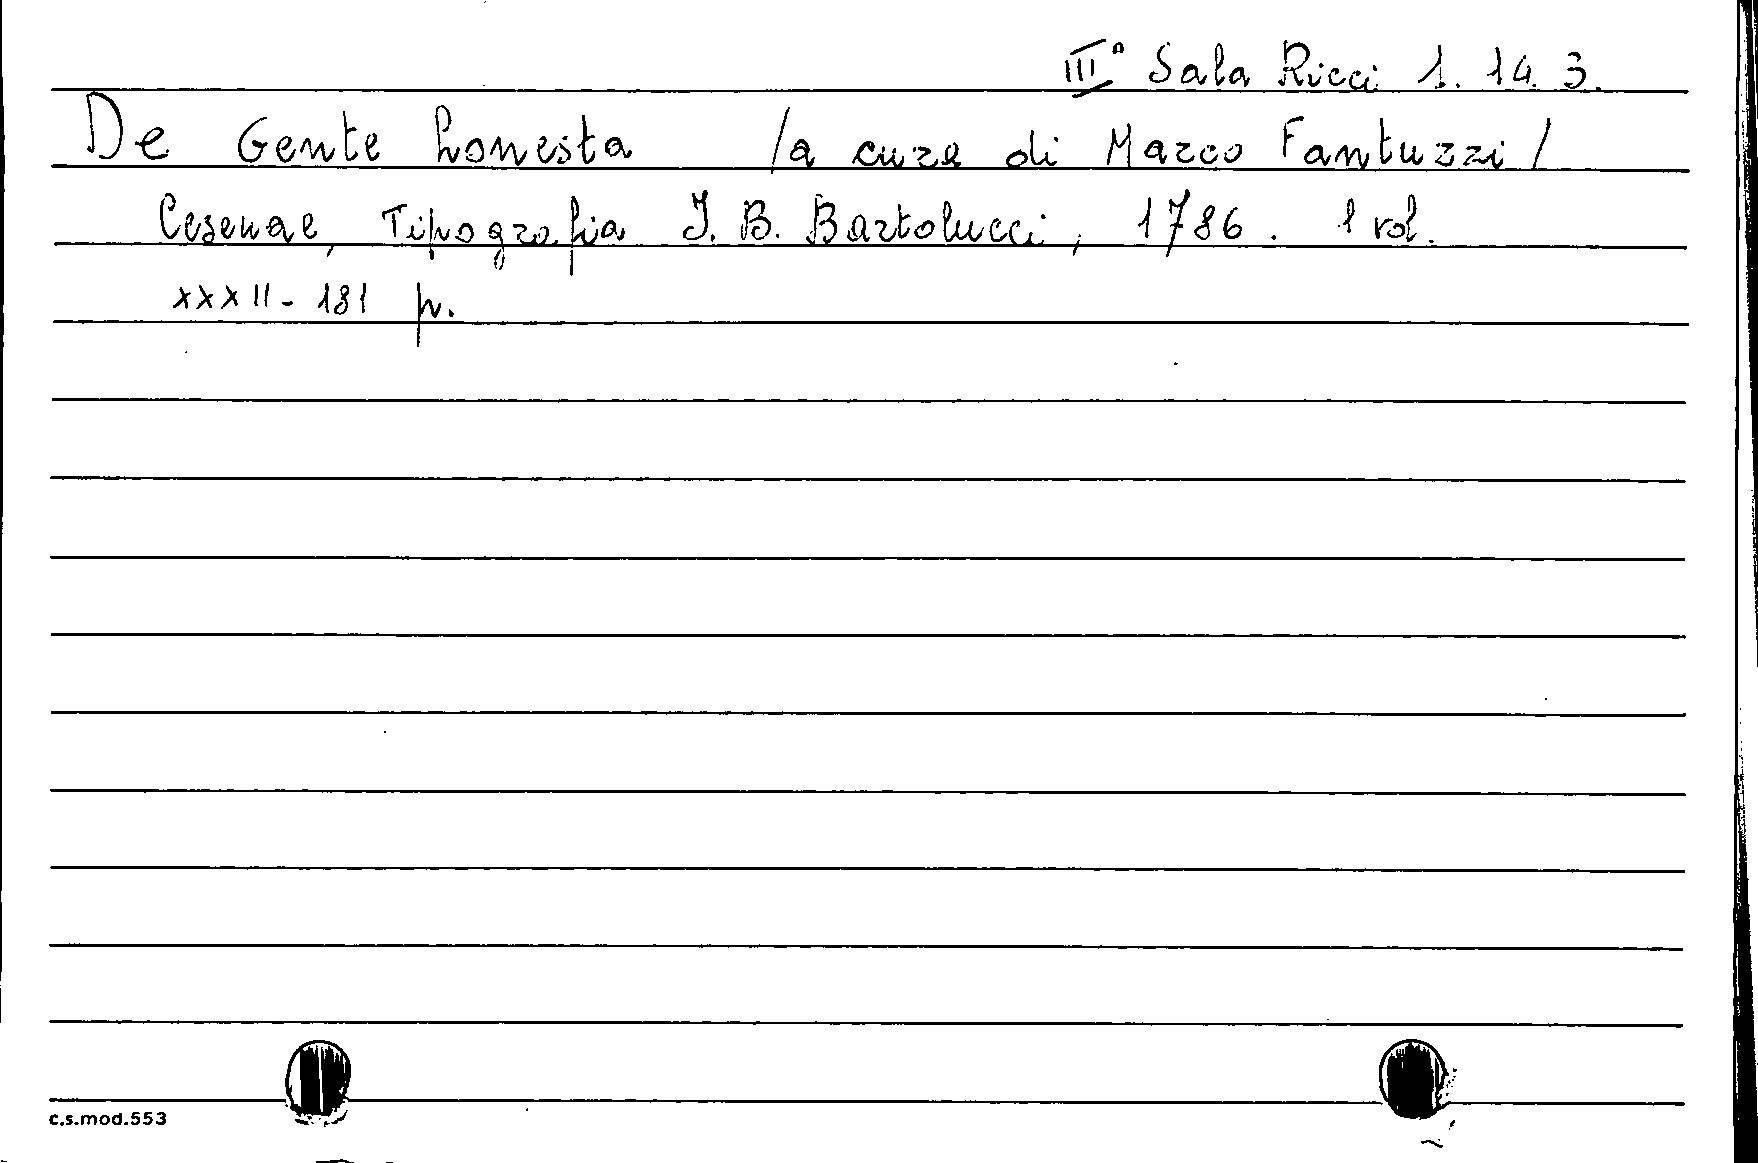 IIIª Sala Ricci 1. 14. 3.
De Gente honesta /a cura di Marco Fantuzzi/
Cesenae, Tipografia J. B. Bartolucci, 1786. 1 vol.
XXXII - 181 p.
c.s.mod.553